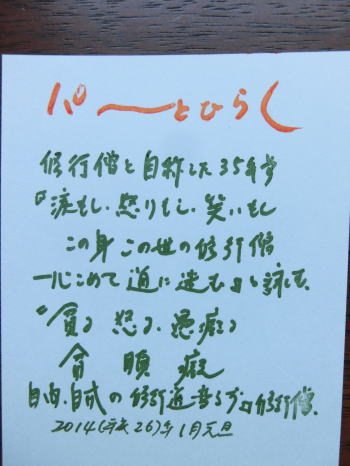 パーとひらく
修行僧と自称した35年歩
『涙もし、怒りもし、笑いもし
この身この世の修行僧
一心こめて道に迷む』と詠む、
"貪る 怒る、愚癡る
貪 瞋 癡
自由、自戒の修行道
2014(平成26)年1月元旦